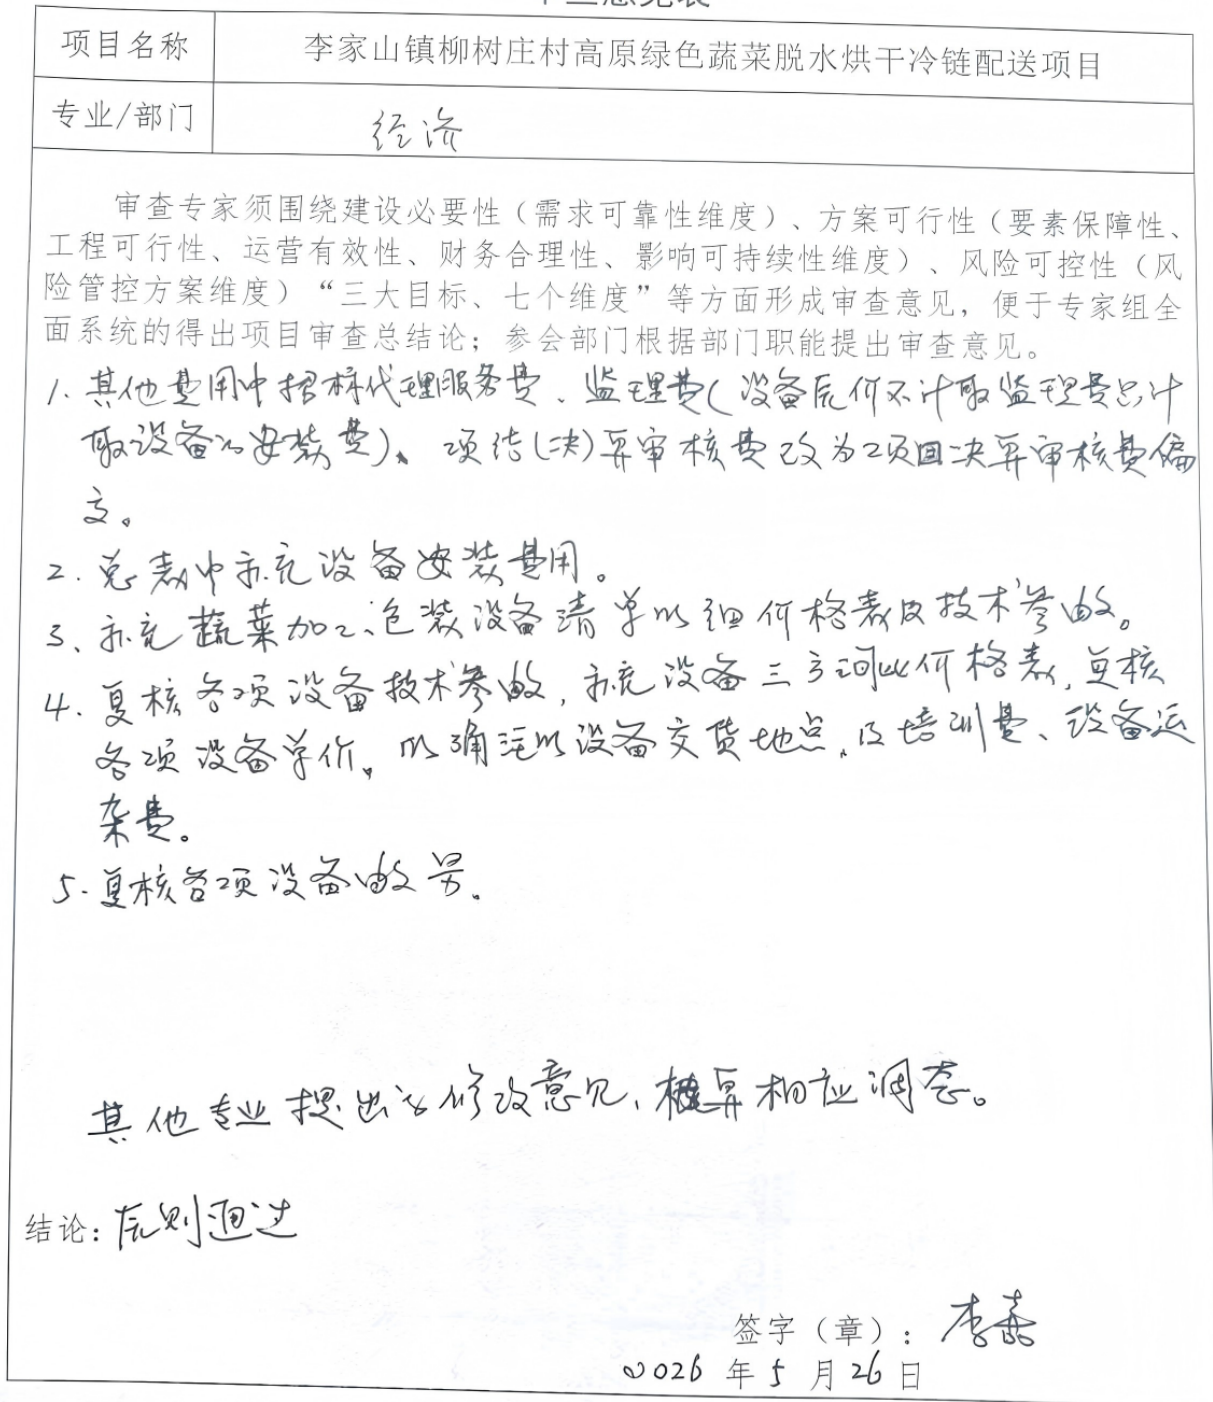 审查意见表
项目名称 李家山镇柳树庄村高原绿色蔬菜脱水烘干冷链配送项目
专业/部门 经济
审查专家须围绕建设必要性（需求可靠性维度）、方案可行性（要素保障性、
工程可行性、运营有效性、财务合理性、影响可持续性维度）、风险可控性（风
险管控方案维度）“三大目标、七个维度”等方面形成审查意见，便于专家组全
面系统的得出项目审查总结论；参会部门根据部门职能提出审查意见。
1. 其他费用中招标代理服务费、监理费(设备原价不计取监理费只计
取设备的安装费)、项结(决)算审核费改为项目决算审核费偏
高。
2. 总表中补充设备安装费用。
3、补充蔬菜加工、包装设备清单明细价格表及技术参数。
4. 复核各项设备技术参数,补充设备三方询比价格表,复核
各项设备单价。明确 设备交货地点,及培训费、设备运
杂费。
5. 复核各项设备数量。
其他专业提出的修改意见,概算相应调整。
结论: 原则通过
签字（章）: 李
2026 年 5 月 26 日